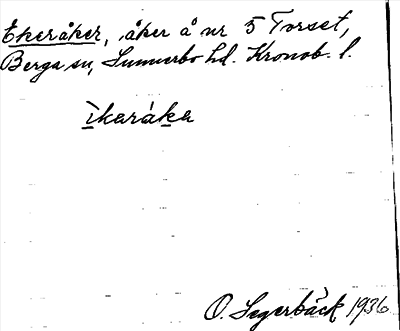 Ekeråker, åker å nr 5 Torset,
Berga sn, Sunnerbo hd. Kronob. l.
ìkaráka
O. Segerbäck 1936